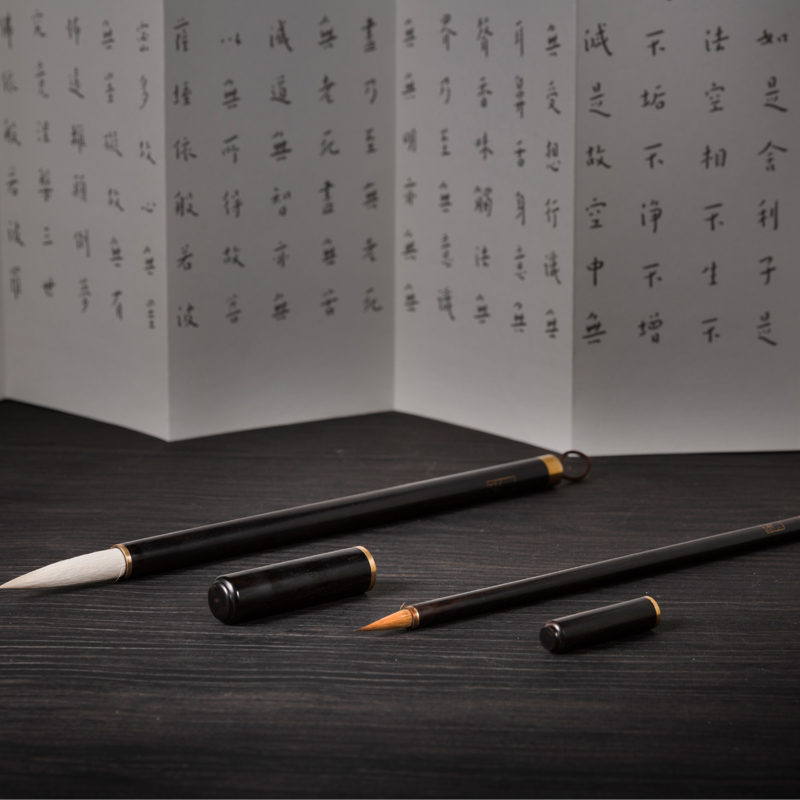 如是舍利子是
法空相不生不
不垢不淨不增
減是故空中無
無受想行識無
耳鼻舌身意無
聲香味觸法無
界乃至無意識
無無明亦無無
盡乃至無老死
無老死盡無苦
滅道無智亦無
以無所得故菩
薩埵依般若波
蜜多故心無罣
無罣礙故無有
怖遠離顛倒夢
究竟涅槃三世
佛依般若波羅